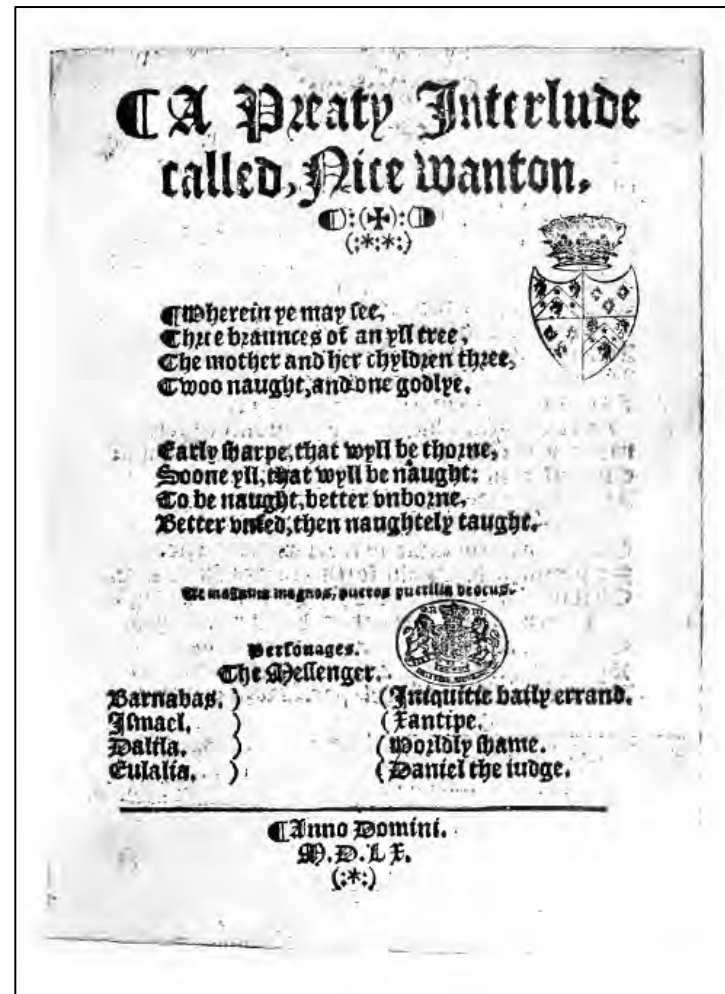 ¶A Preaty Interlude
called, Nice wanton.
¶Wherein ye may see,
Three braunces of an yll tree,
The mother and her chyldren three,
Twoo naught, and one godlye.
Early sharpe, that wyll be thorne,
Soone yll, that wyll be naught:
To be naught, better vnborne,
Better vnfed, then naughtely taught.
Et magnum magnos, pueros puerilia decus.
Personages.
The Messenger.
Barnabas. ) ( Iniquitie baily errand.
Ismael. ) ( Xantipe.
Dalila. ) ( Worldly shame.
Eulalia. ) ( Daniel the iudge.
¶Anno Domini.
M.D.LX.
(:*:)